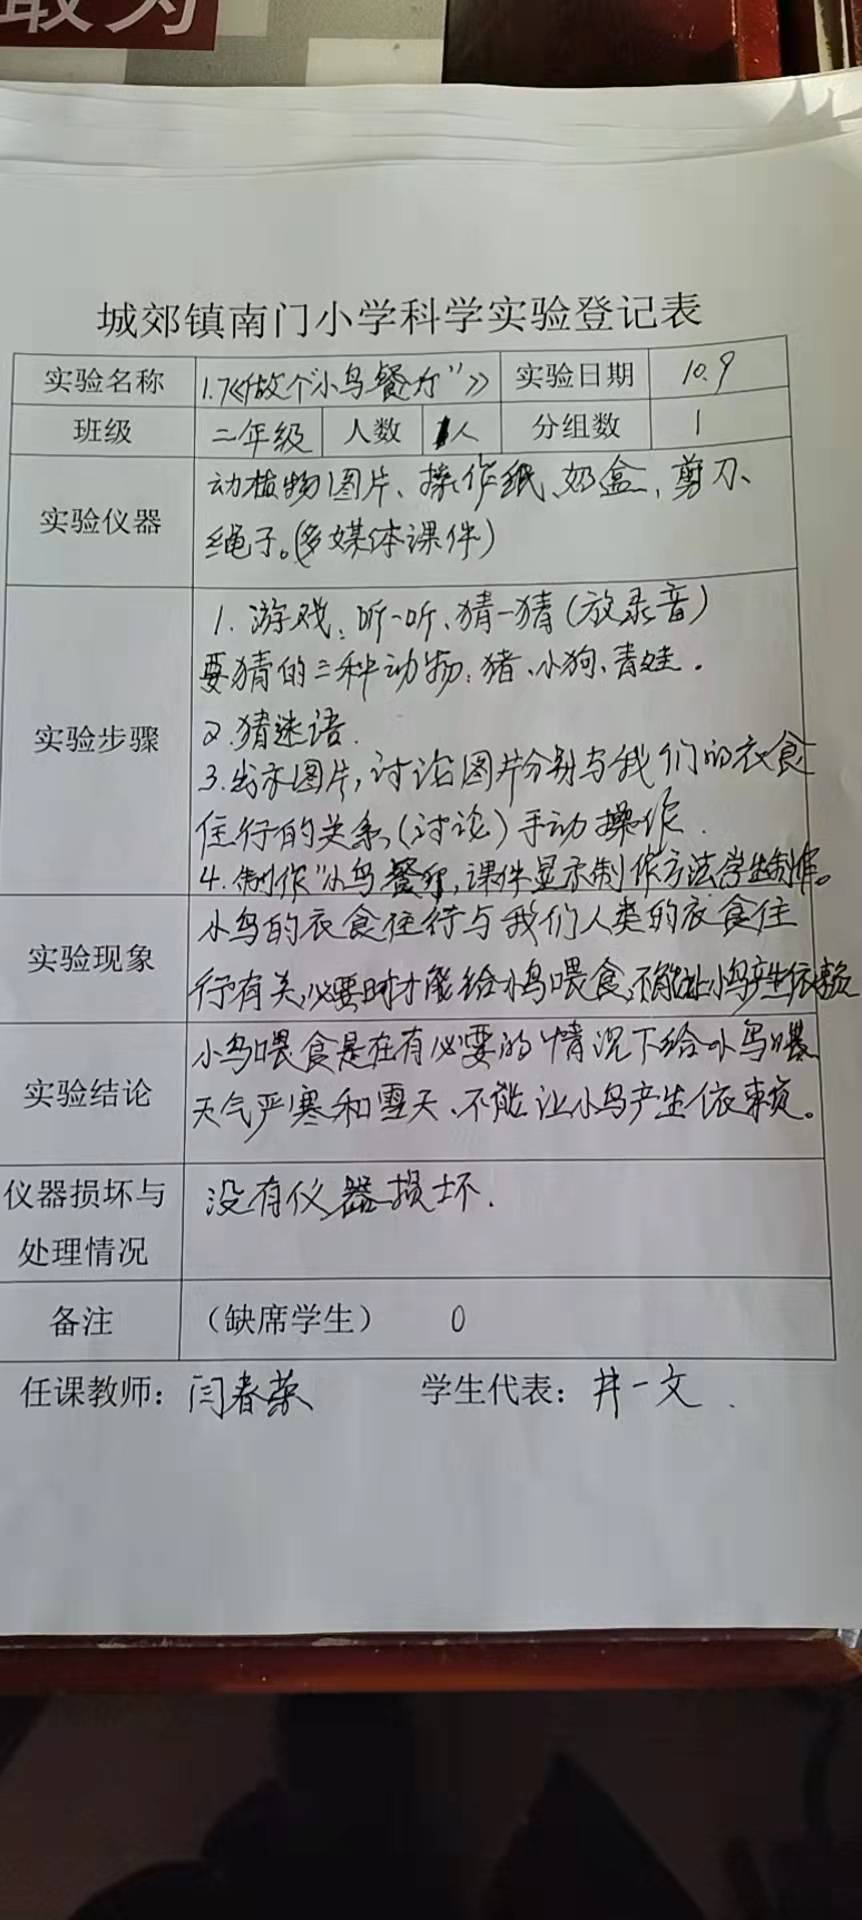 取为
城郊镇南门小学科学实验登记表
实验名称 1.7《做个"小鸟餐厅"》 实验日期 10.9
班级 二年级 人数 1人 分组数 1
实验仪器
动植物图片、操作纸、奶盒、剪刀、
绳子。(多媒体课件)
实验步骤
1. 游戏:听一听、猜一猜(放录音)
要猜的三种动物:猪、小狗、青蛙.
2.猜迷语.
3.出示图片,讨论图片分别与我们的衣食
住行的关系(讨论)手动操作.
4.制作"小鸟餐厅,课件显示制作方法学生制作。
实验现象
小鸟的衣食住行与我们人类的衣食住
行有关,必要时才能给小鸟喂食,不能让小鸟产生依赖
实验结论
小鸟喂食是在有必要的情况下给小鸟喂
天气严寒和雪天、不能让小鸟产生依赖。
仪器损坏与
处理情况
没有仪器损坏.
备注 (缺席学生) 0
任课教师:闫春荣 学生代表:井一文.